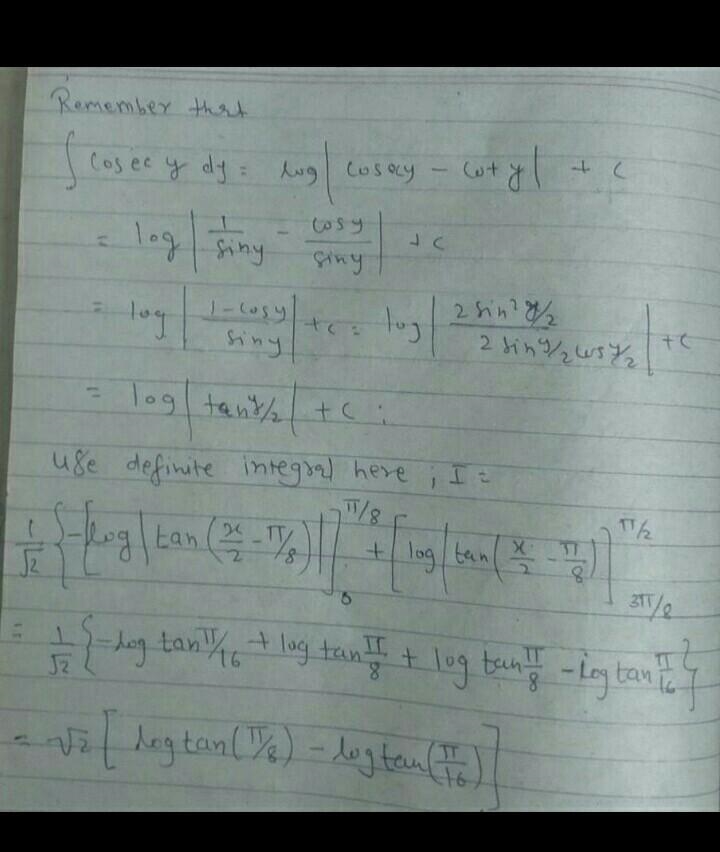 Remember that
∫ cosec y dy = log | cosecy - cot y | + c
= log | 1/siny - cosy/siny | + c
= log | 1-cosy/siny | + c = log | 2 sin² y/2 / 2 sin y/2 cos y/2 | + c
= log | tan y/2 | + c ;
use definite integral here ; I =
1/√2 { -[log | tan (x/2 - π/8) |]₀^π/8 + [log | tan (x/2 - π/8)]_3π/8^π/2
= 1/√2 { -log tan π/16 + log tan π/8 + log tan π/8 - log tan π/16 }
= √2 [ log tan(π/8) - log tan(π/16) ]